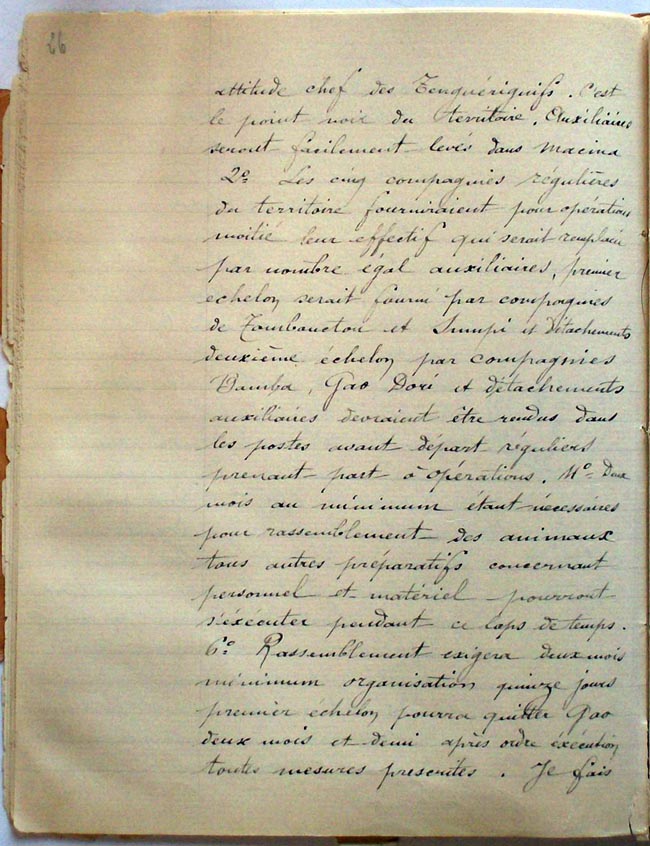 26
attitude chef des Tenguériguifs. C'est
le point noir du territoire. Auxiliaires
seront facilement levés dans Macina
2º Les cinq compagnies régulières
du territoire fourniraient pour opération
moitié leur effectif qui serait remplacé
par nombre égal auxiliaires, premier
echelon serait fourni par compagnies
de Tombouctou et Sumpi et détachements
deuxième échelon par compagnies
Bamba, Gao Dori et détachements
auxiliaires devraient être rendus dans
les postes avant départ réguliers
prenant part à opérations. 4º Deux
mois au minimum étant nécessaires
pour rassemblement des animaux
tous autres préparatifs concernant
personnel et matériel pourront
s'éxécuter pendant ce laps de temps.
6º Rassemblement exigera deux mois
minimum organisation quinze jours
premier échelon pourra quitter Gao
deux mois et demi après ordre éxécution,
toutes mesures prescrites. Je fais